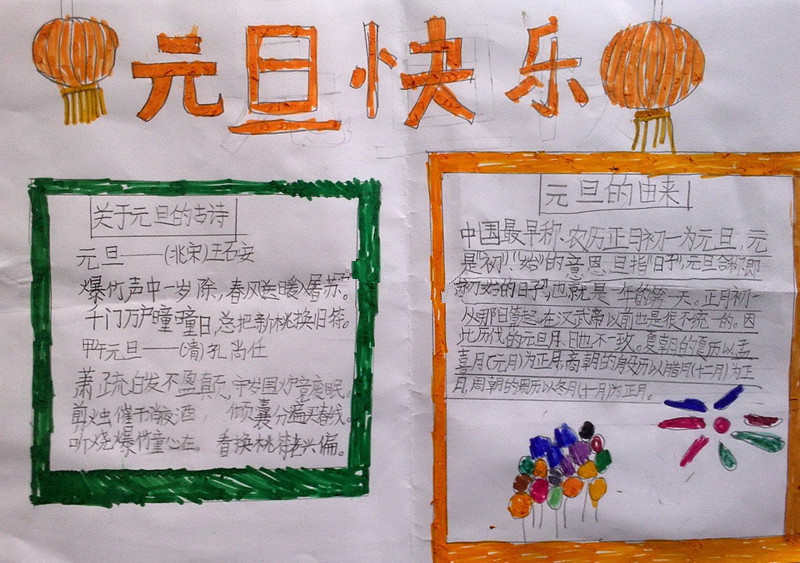 元旦快乐
关于元旦的古诗
元旦——(北宋)王石安
爆竹声中一岁除,春风送暖入屠苏。
千门万户瞳瞳日,总把新桃换旧符。
甲午元旦——(清)孔尚任
萧疏白发不盈颠,守岁围炉竟废眠。
剪烛催干消夜酒 倾囊分遍买春钱。
听烧爆竹童心在。 看换桃符老兴偏。
元旦的由来
中国最早称农历正月初一为元旦,元
是"初""始"的意思,旦指"日子",元旦合称即
"初始的日子",也就是一年的第一天。正月初一
从哪日算起,在汉武帝以前也是很不统一的。因
此历代的元旦月、日也不一致。夏朝的夏历以孟
喜月(元月)为正月,商朝的殷历以腊月(十二月)为正
月,周朝的周历以冬月(十一月)为正月。